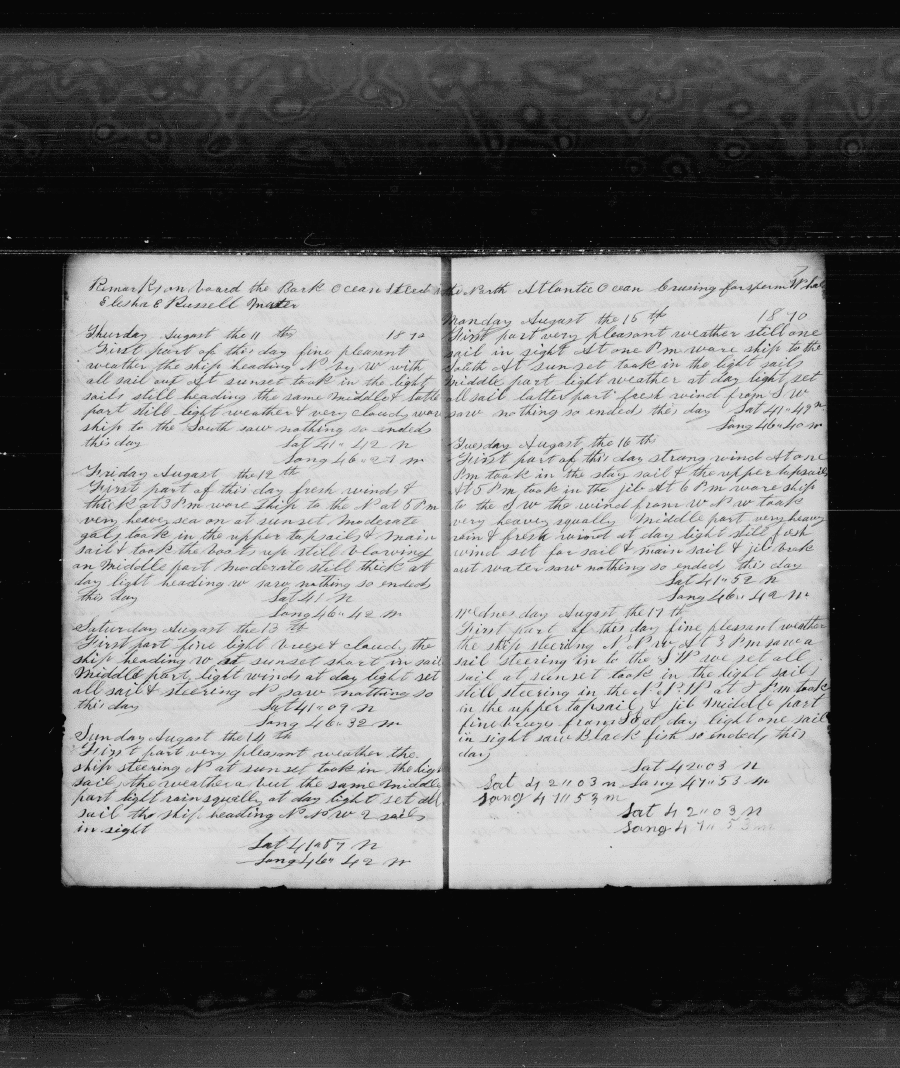 Remarks on board the Bark Ocean Steed
Elisha E Russell Master
Thursday August the 11 th 1870
First part of this day fine pleasant
weather the ship heading N by W with
all sail out At sunset took in the light
sails still heading the same middle & latter
part still light weather & very cloudy wore
ship to the South saw nothing so ended
this day Lat 41" 42 N
Long 46" 27 W
Friday August the 12 th
First part of this day fresh wind &
thick at 3 Pm wore ship to the N at 5 Pm
very heavey sea on at sunset moderate
gale took in the upper topsails & main
sail & took the boats up still blowing
an Middle part moderate still thick at
day light heading W saw nothing so ended
this day Lat 41 N
Long 46" 42 W
Saturday August the 13 th
First part fine light breeze & cloudy the
ship heading W at sunset short in sail
Middle part light winds at day light set
all sail & steering N saw nothing so
this day Lat 41" 09 N
Long 46" 32 W
Sunday August the 14 th
First part very pleasant weather the
ship steering N at sunset took in the light
sail the weather a bout the same middle
part light rain squally at day light set all
sail the ship heading N N W 2 sails
in sight
Lat 41" 57 N
Long 46" 42 W
the North Atlantic Ocean Crusing for sperm Whal
7
Monday August the 15 th 1870
First part very pleasant weather still one
sail in sight At one Pm wore ship to the
South At sunset took in the light sail
Middle part light weather at day light set
all sail latter part fresh wind from S W
saw nothing so ended this day Lat 41" 49 N
Long 46" 40 W
Tuesday August the 16 th
First part of this day strong wind At one
Pm took in the stay sail & the upper topsails
At 5 Pm took in the jib At 6 Pm wore ship
to the S W the wind from W N W took
very heavey squally Middle part very heavy
rain & fresh wind at day light still fresh
wind set for sail & main sail & jib brok
out water saw nothing so ended this day
Lat 41" 52 N
Long 46" 42 W
Wednesday August the 17 th
First part of this day fine plesant weather
the ship steering N N W At 3 Pm saw a
sail steering in to the S W we set all
sail at sunset took in the light sail
still steering in the N N W at 8 Pm took
in the upper topsail & jib Middle part
fine breeze from at day light one sail
in sight saw Black fish so ended this
day
Lat 42" 03 N
Lat 42" 03 N Long 47" 53 W
Long 47" 53 W
Lat 42" 03 N
Long 47" 53 W